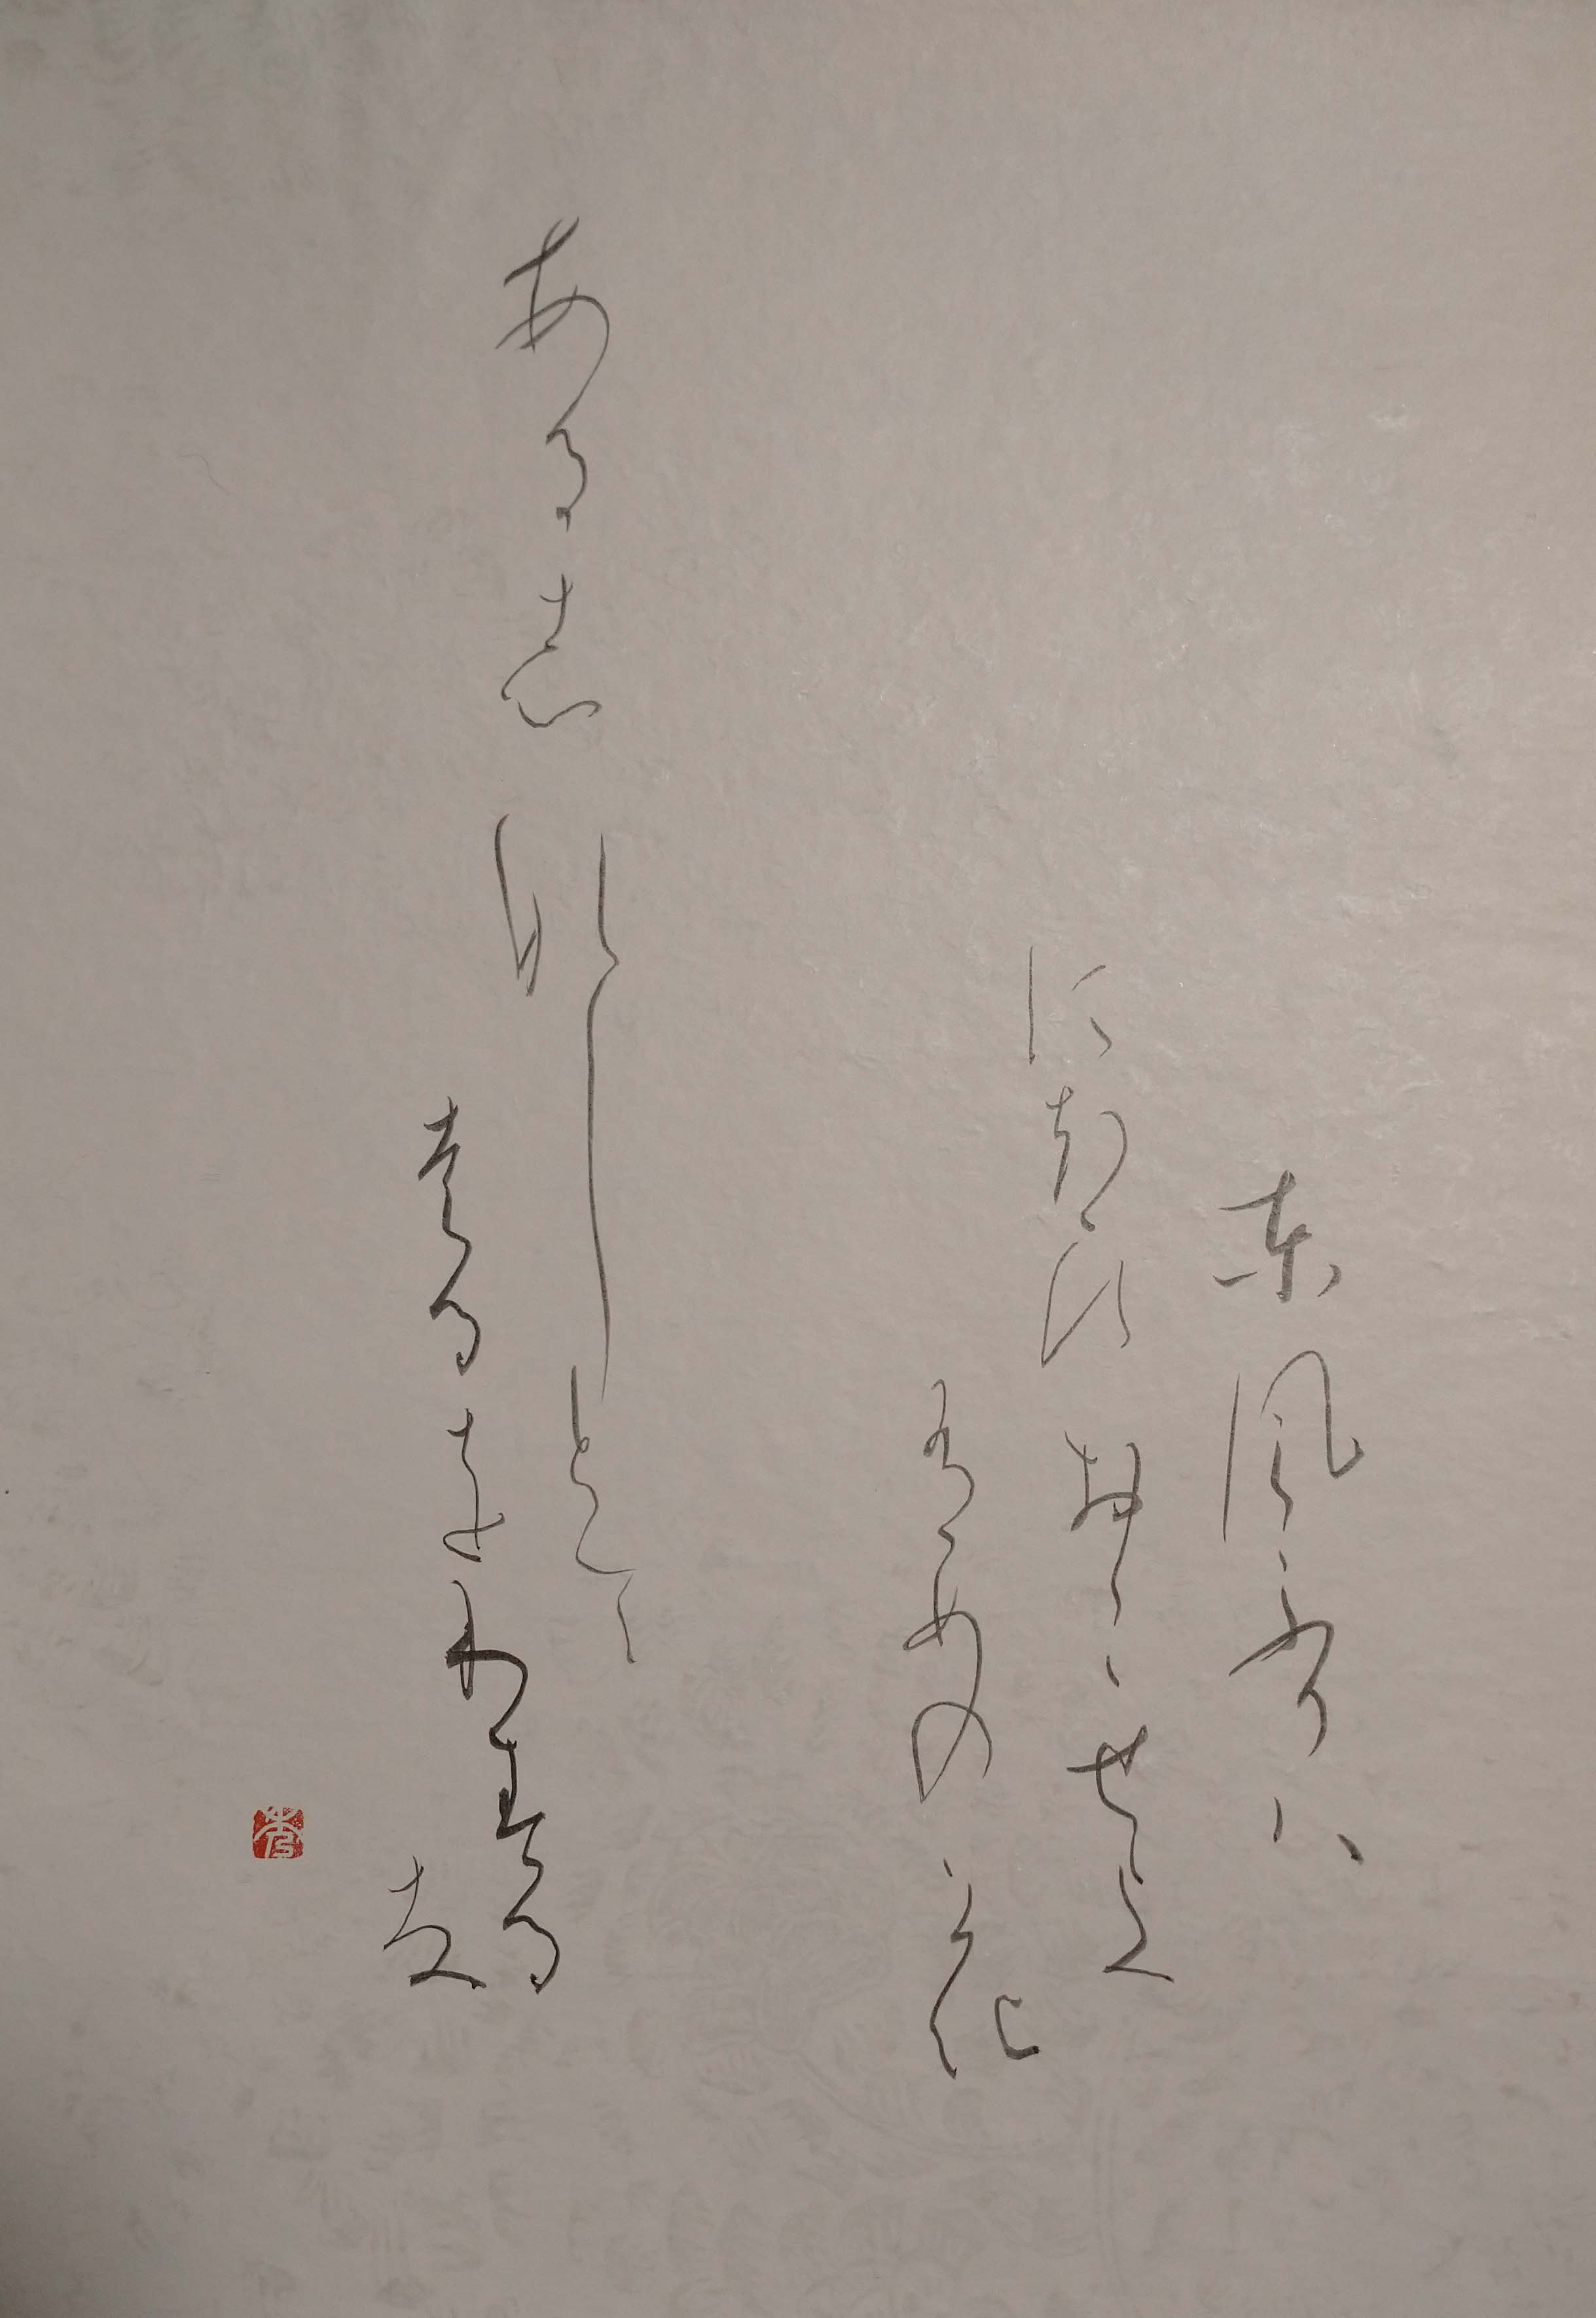 東風ふかハ
にほひおこせよ
うめの花
ある志なしとて
はるをわ春る
な